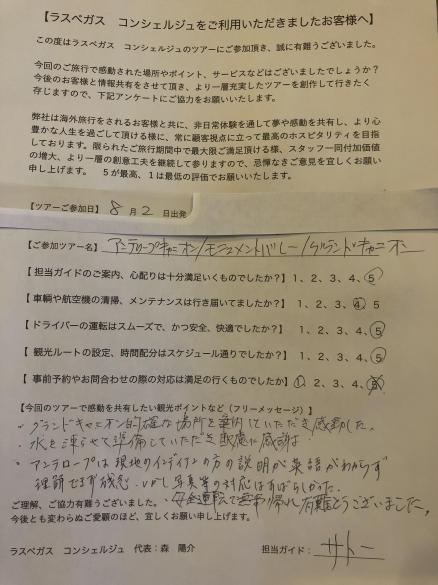 【ラスベガス コンシェルジュをご利用いただきましたお客様へ】
この度はラスベガス コンシェルジュのツアーにご参加頂き、誠に有難うございました。
今回のご旅行で感動された場所やポイント、サービスなどはございましたでしょうか?
今後のお客様と情報共有をさせて頂き、より一層充実したツアーを創作して行きたく
存じますので、下記アンケートにご協力をお願いいたします。
弊社は海外旅行をされるお客様と共に、非日常体験を通して夢や感動を共有し、より心
豊かな人生を過ごして頂ける様に、常に顧客視点に立って最高のホスピタリティを目指
しております。限られたご旅行期間中で最大限ご満足頂ける様、スタッフ一同付加価値
の増大、より一層の創意工夫を継続して参りますので、忌憚なきご意見を宜しくお願い
申し上げます。 5が最高、1は最低の評価でお願いいたします。
【ツアーご参加日】 8月 2 日出発
【ご参加ツアー名】 アンテロープキャニオン/モニュメントバレー/グランドキャニオン
【担当ガイドのご案内、心配りは十分満足いくものでしたか?】1、2、3、4、5
【車輌や航空機の清掃、メンテナンスは行き届いてましたか?】1、2、3、4、5
【ドライバーの運転はスムーズで、かつ安全、快適でしたか?】 1、2、3、4、5
【 観光ルートの設定、時間配分はスケジュール通りでしたか?】1、2、3、4、5
【 事前予約やお問合わせの際の対応は満足の行くものでしたか】1、2、3、4、5
【今回のツアーで感動を共有したい観光ポイントなど(フリーメッセージ)】
・グランドキャニオン的確な場所を案内していただき感動した。
・水を凍らせて準備していただき 感謝
・アンテロープは現地のインディアンの方の説明が英語がわからず
理解できず残念。しかし写真等の対応はすばらしかった。
ご理解、ご協力有難うございました。・安全運転で無事帰れ有難とうございました。
今後とも変わらぬご愛顧のほど、宜しくお願い申し上げます。
ラスベガス コンシェルジュ 代表:森 陽介 担当ガイド: サトー